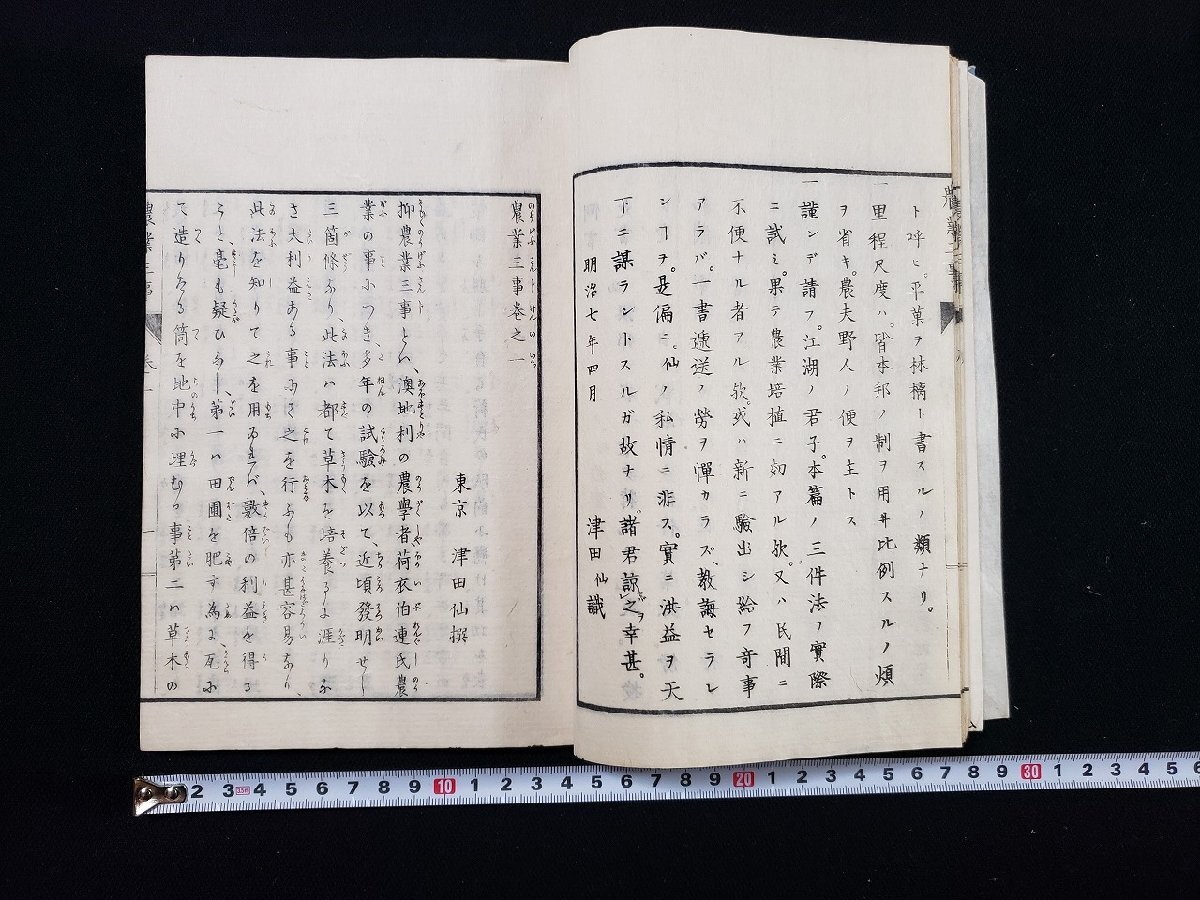 ト呼ヒ。平菓ヲ林檎ト書スルノ類ナリ。
一里程尺度ハ。皆本邦ノ制ヲ用井比例スルノ煩
ヲ省キ。農夫野人ノ便ヲ主トス
一謹ンデ請フ。江湖ノ君子。本篇ノ三件法ノ實際
ニ試ミ。果テ農業培植ニ如アル欤。又ハ民間ニ
不便ナル者アル欤。或ハ新ニ驗出シ給フ奇事
アラバ。一書遞送ノ勞ヲ憚カラズ、教誨セラレ
ンヿヲ。是偏ニ。仙ノ私情ニ非ス。實ニ洪益ヲ天
下ニ謀ラントスルガ故ナリ。諸君諒之幸甚。
明治七年四月
津田仙識
農業三事巻之一
東京 津田仙撰
抑農業三事とハ、澳地利の農學者荷衣伯連氏農
業の事につき、多年の試驗を以て、近頃發明せし
三箇條なり、此法ハ都て草木を培養するに涯りな
き大利益ある事にて之を行ふも亦甚容易なり、
此法を知りて之を用ゐれバ、數倍の利益を得る
こと毫も疑ひなし、第一ハ田圃を肥す為に瓦に
て造りたる筒を地中に埋むる事第二ハ草木の
農業三事
巻一
一
2 3 4 5 6 7 8 9 10 1 2 3 4 5 6 7 8 9 20 1 2 3 4 5 6 7 8 9 30 1 2 3 4 5 6